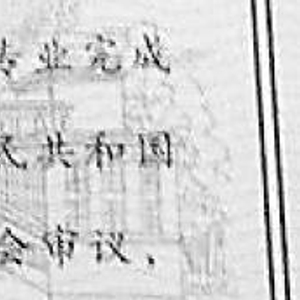 专业完成
民共和国
会审议，